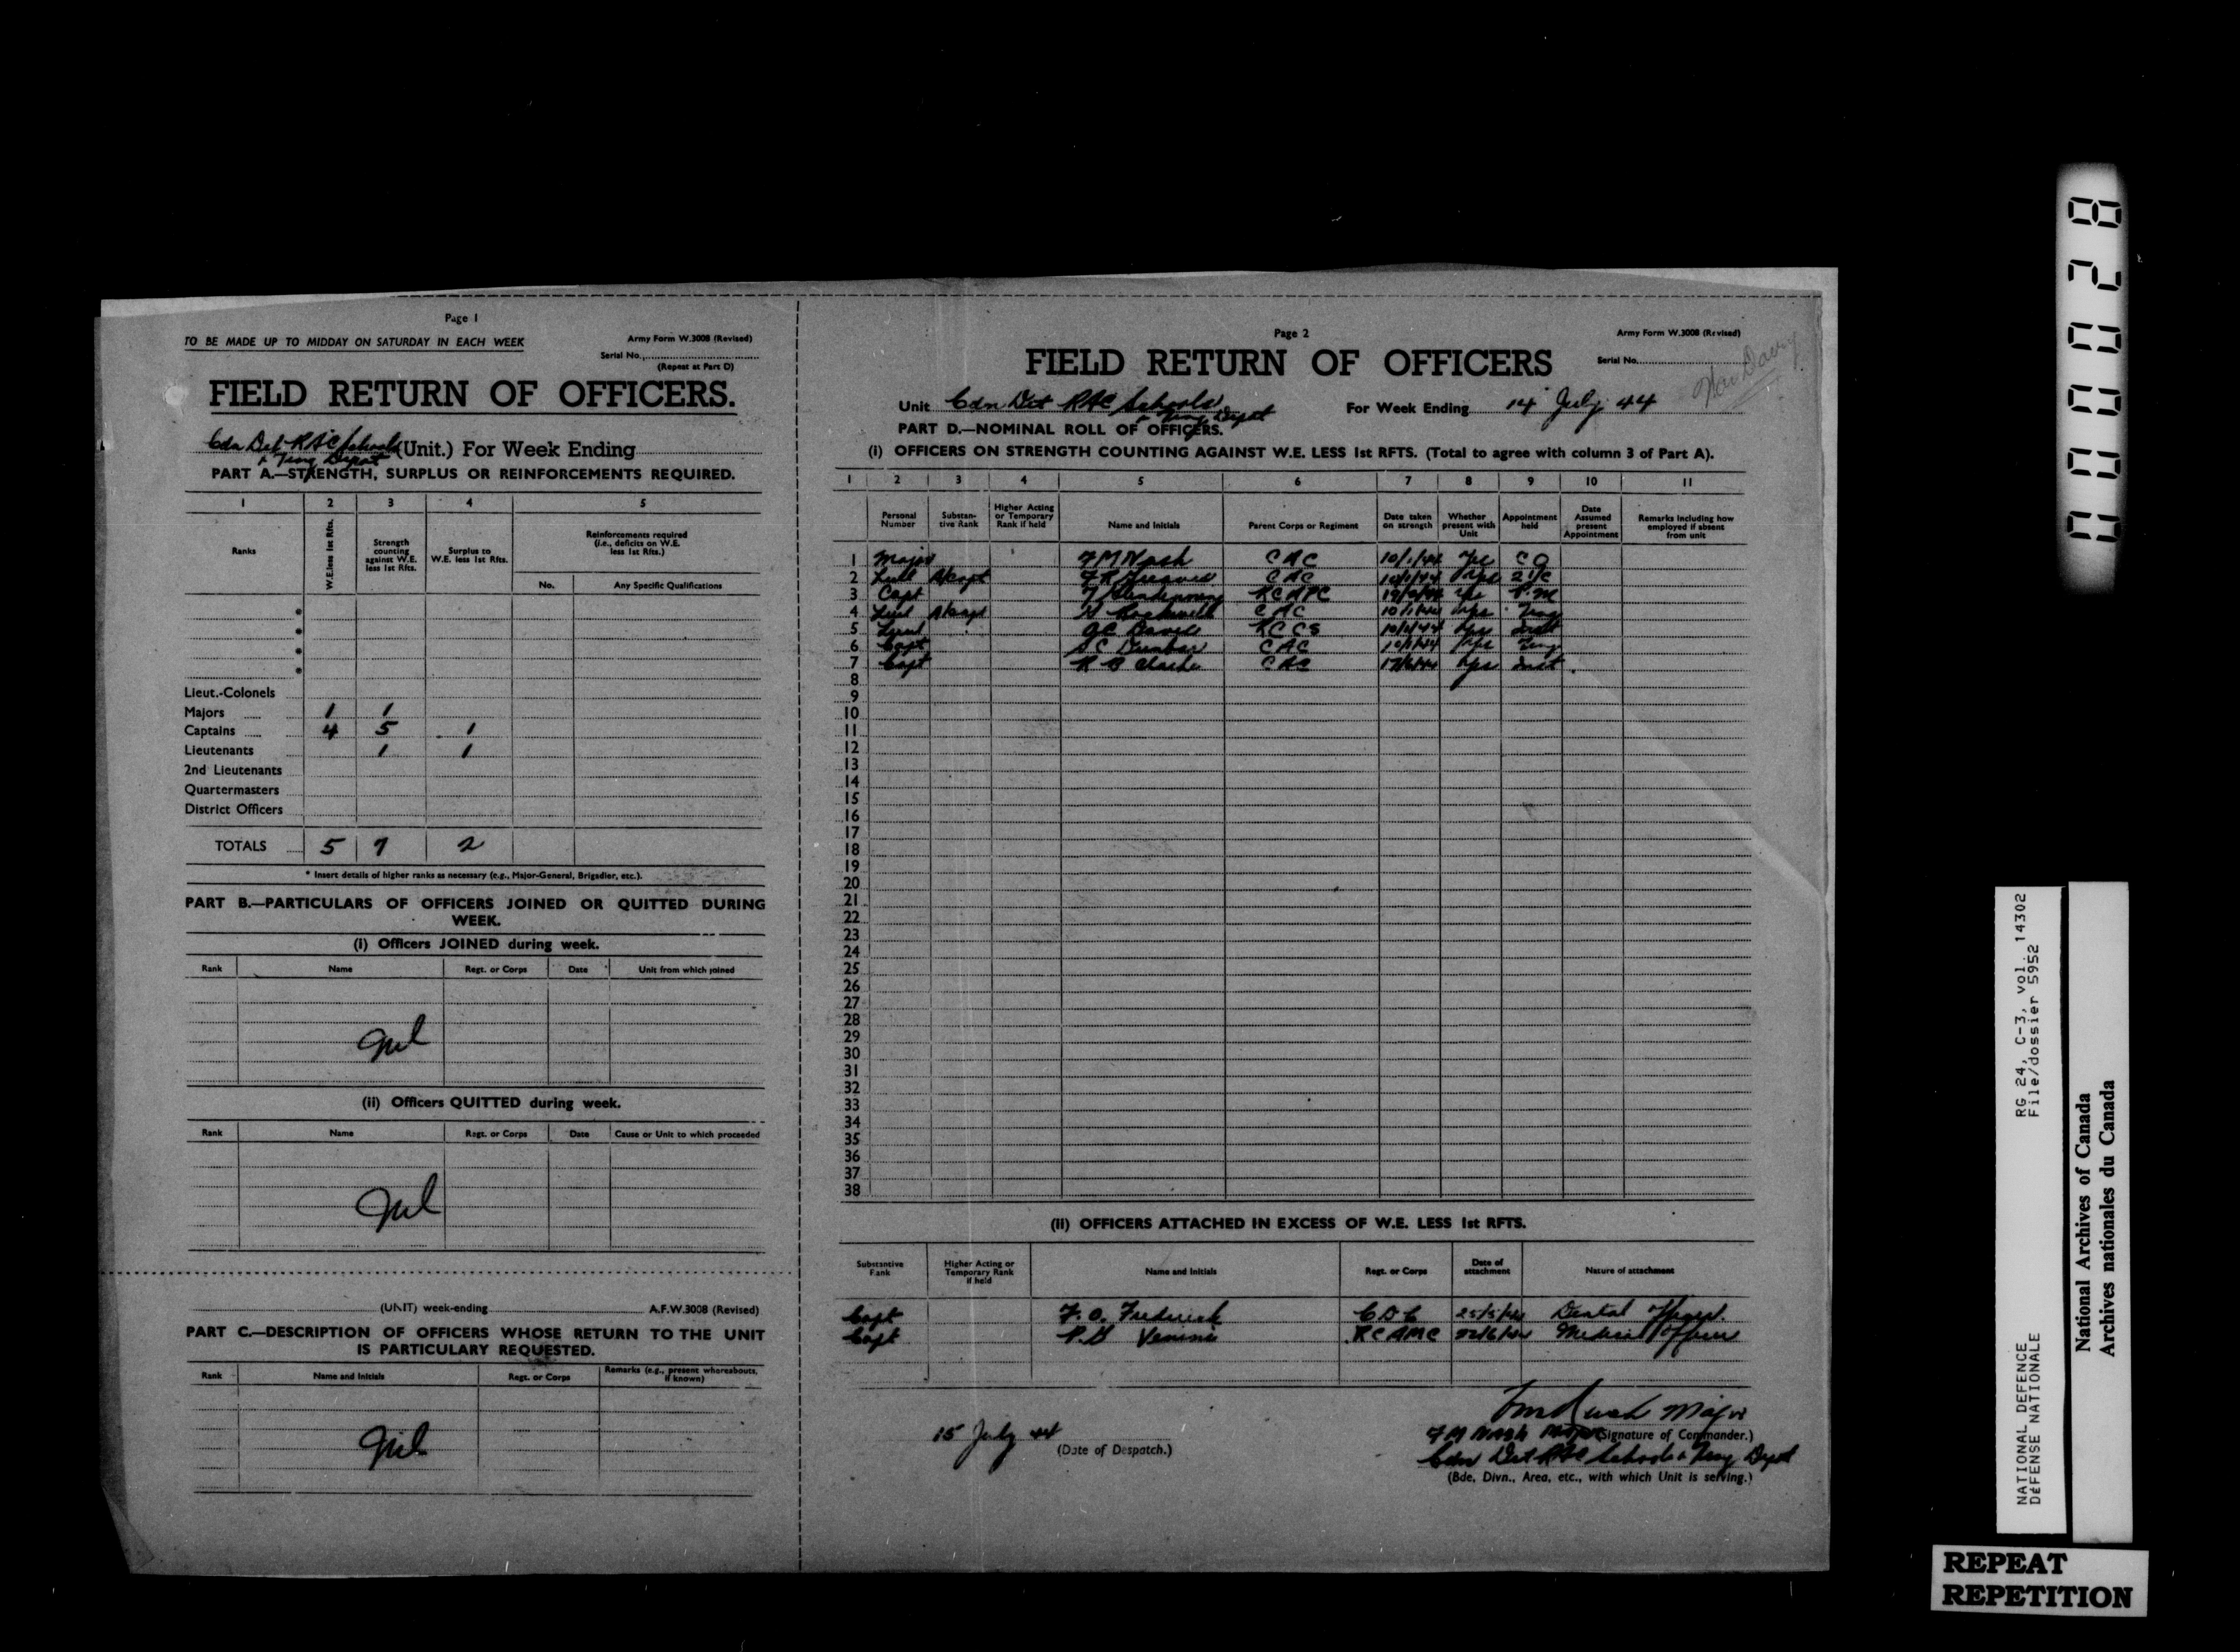 Page 1
TO BE MADE UP TO MIDDAY ON SATURDAY IN EACH WEEK
Army Form W.3008 (Revised)
Serial No.
(Repeat at Part D)
FIELD RETURN OF OFFICERS.
Cdn Det RAC Schools (Unit.) For Week Ending
& Trng Depot
PART A.—STRENGTH, SURPLUS OR REINFORCEMENTS REQUIRED.
1 2 3 4 5
Ranks W.E. less 1st Rfts. Strength counting against W.E. less 1st Rfts. Surplus to W.E. less 1st Rfts. Reinforcements required (i.e., deficits on W.E. less 1st Rfts.)
No. Any Specific Qualifications
*
*
*
*
Lieut.-Colonels
Majors 1 1
Captains 4 5 1
Lieutenants 1 1
2nd Lieutenants
Quartermasters
District Officers
TOTALS 5 7 2
* Insert details of higher ranks as necessary (e.g., Major-General, Brigadier, etc.).
PART B.—PARTICULARS OF OFFICERS JOINED OR QUITTED DURING
WEEK.
(i) Officers JOINED during week.
Rank Name Regt. or Corps Date Unit from which joined
Nil
(ii) Officers QUITTED during week.
Rank Name Regt. or Corps Date Cause or Unit to which proceeded
Nil
(UNIT) week-ending A.F.W.3008 (Revised)
PART C.—DESCRIPTION OF OFFICERS WHOSE RETURN TO THE UNIT
IS PARTICULARY REQUESTED.
Rank Name and Initials Regt. or Corps Remarks (e.g., present whereabouts, if known)
Nil
Page 2
Army Form W.3008 (Revised)
FIELD RETURN OF OFFICERS
Serial No.
Unit Cdn Det RAC Schools For Week Ending 14 July 44
& Trng Depot
PART D.—NOMINAL ROLL OF OFFICERS.
(i) OFFICERS ON STRENGTH COUNTING AGAINST W.E. LESS 1st RFTS. (Total to agree with column 3 of Part A).
1 2 3 4 5 6 7 8 9 10 11
Personal Number Substantive Rank Higher Acting or Temporary Rank if held Name and Initials Parent Corps or Regiment Date taken on strength Whether present with Unit Appointment held Date Assumed present Appointment Remarks including how employed if absent from unit
1 Major F M Nash CAC 10/1/44 Yes C O
2 Lieut A/Capt F R Greaves CAC 10/1/44 Yes 2 i/c
3 Capt RCAPC Yes P.M
4 Lieut A/Capt CAC 10/1/44 Yes Trng
5 Lieut RCCS 10/1/44 Yes Inst
6 Capt Dunbar CAC 10/1/44 Yes Trng
7 Capt Clarke CAC 17/6/44 Yes Inst
8
9
10
11
12
13
14
15
16
17
18
19
20
21
22
23
24
25
26
27
28
29
30
31
32
33
34
35
36
37
38
(II) OFFICERS ATTACHED IN EXCESS OF W.E. LESS 1st RFTS.
Substantive Rank Higher Acting or Temporary Rank if held Name and Initials Regt. or Corps Date of attachment Nature of attachment
Capt F. O. Frederick C D C 25/5/44 Dental Officer.
Capt RCAMC Medical Officer
Major
15 July 44 F M NASH Major (Signature of Commander.)
(Date of Despatch.)
Cdn Det RAC Schools & Trng Depot
(Bde, Divn., Area, etc., with which Unit is serving.)
000028
RG 24, C-3, vol. 14302
File/dossier 5952
NATIONAL DEFENCE
DÉFENSE NATIONALE
National Archives of Canada
Archives nationales du Canada
REPEAT
REPETITION